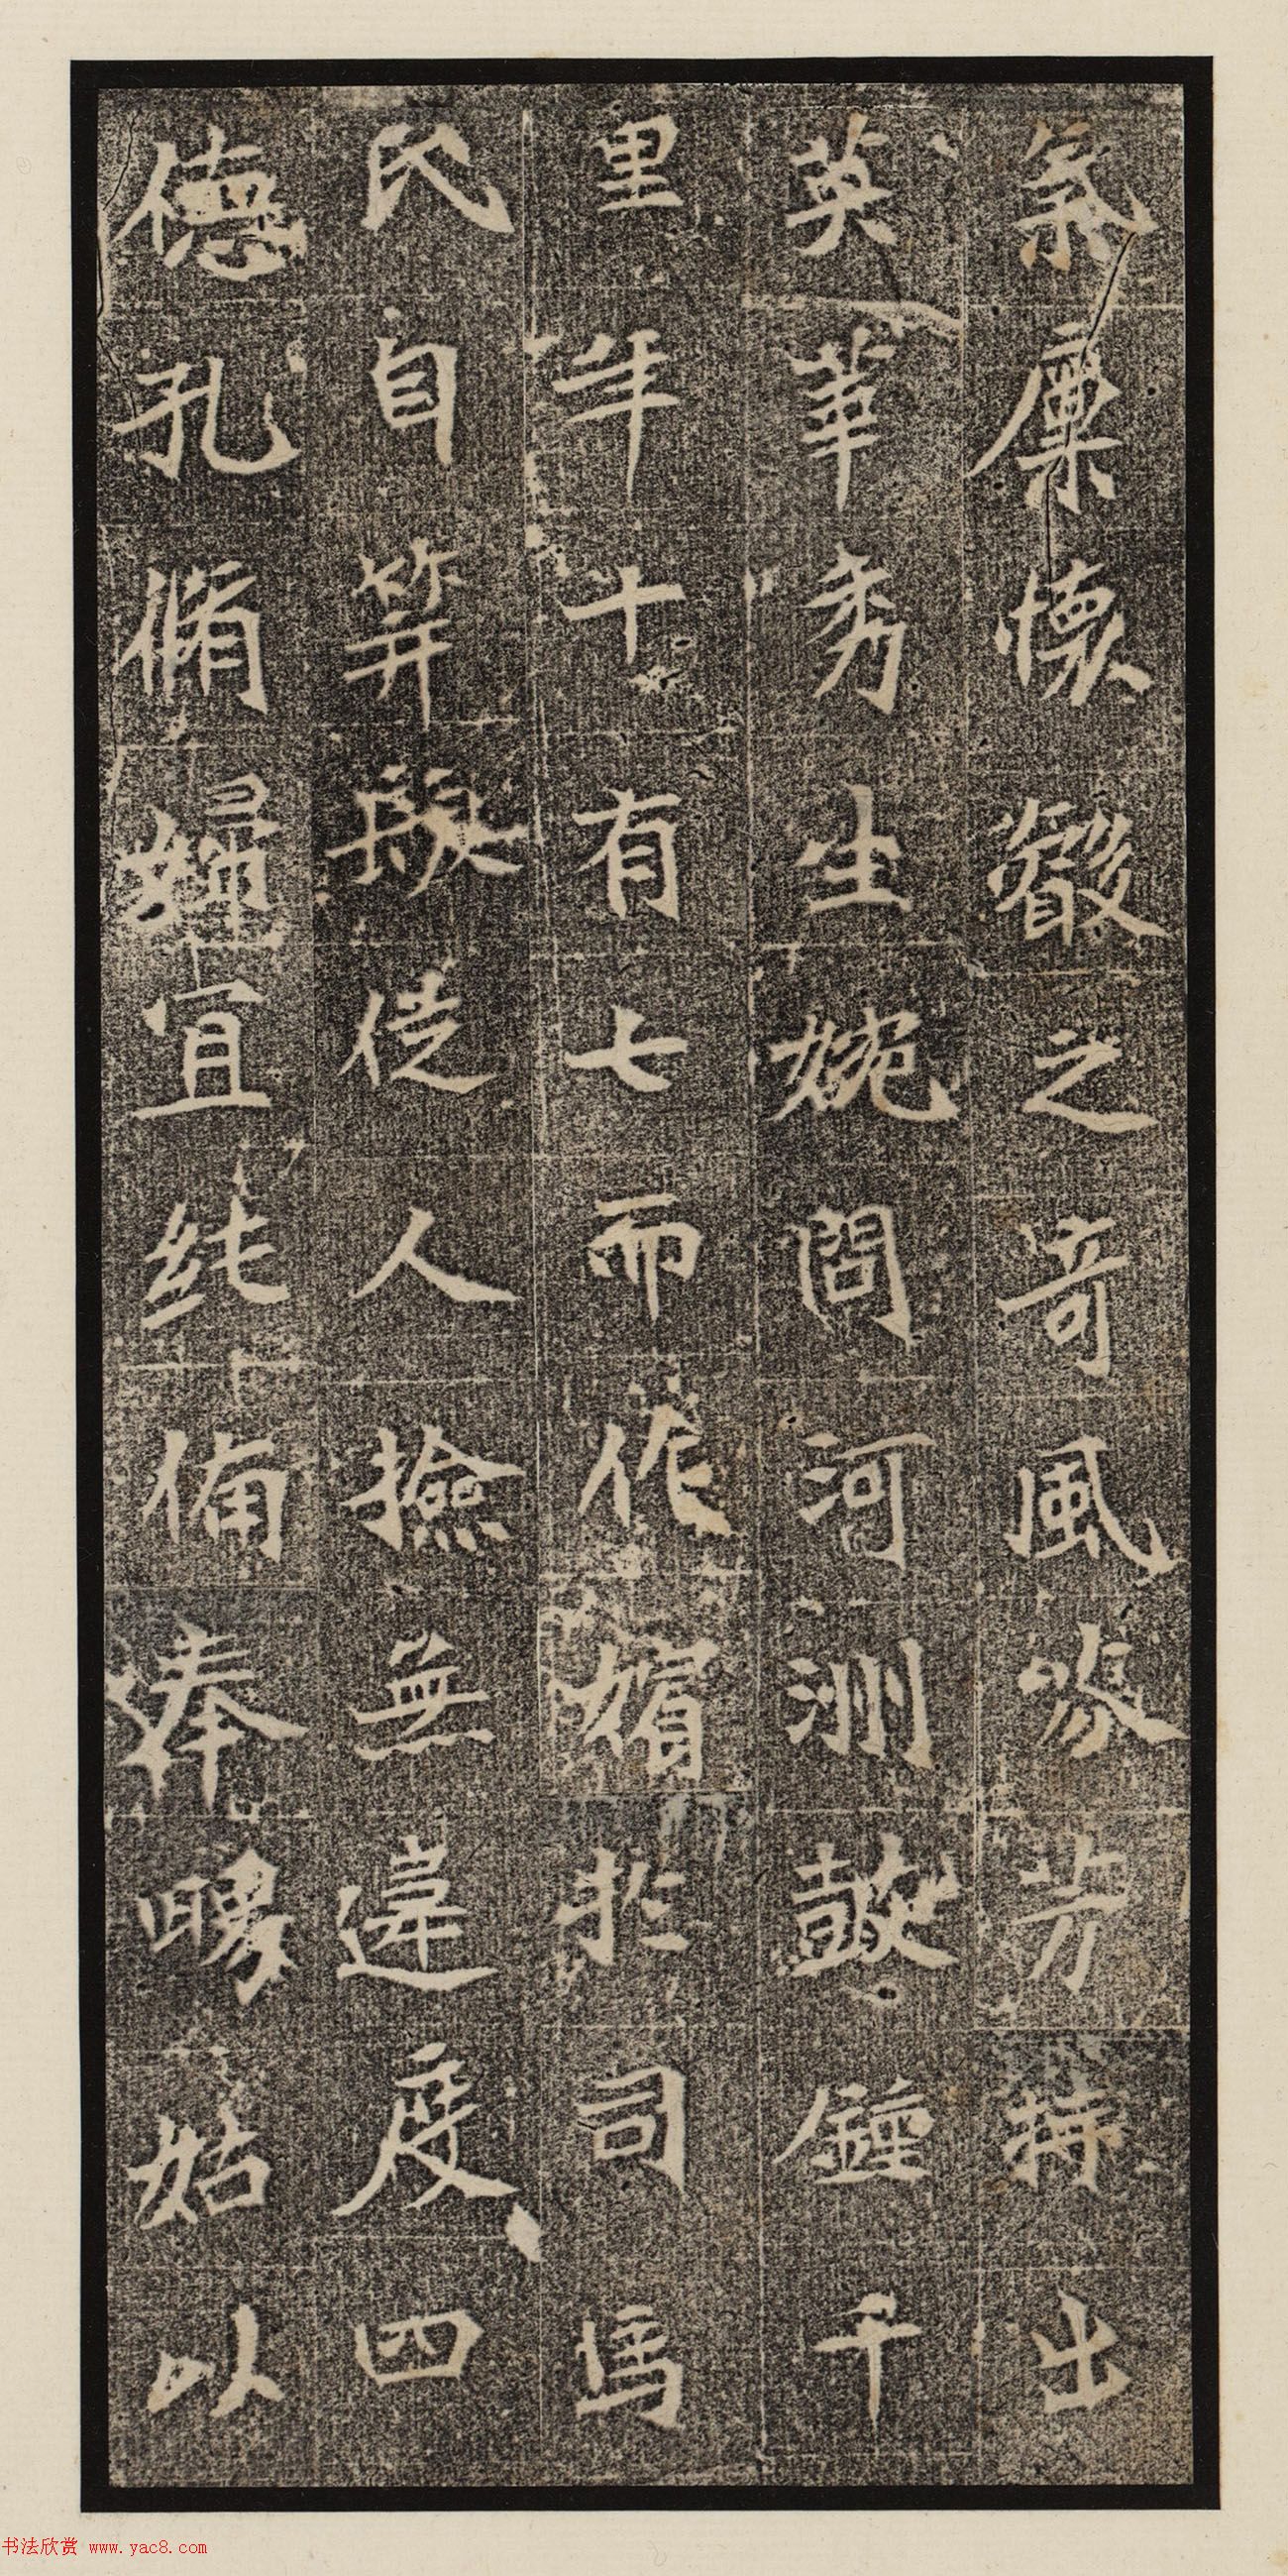 氣稟懷叡之奇風芳特出
英華秀生婉問河洲鼓鐘千
里年十有七而作嬪於司馬
氏自笄髮從人撿無違度四
德孔脩婦宜純備奉舅姑以
书法欣赏 www.yac8.com